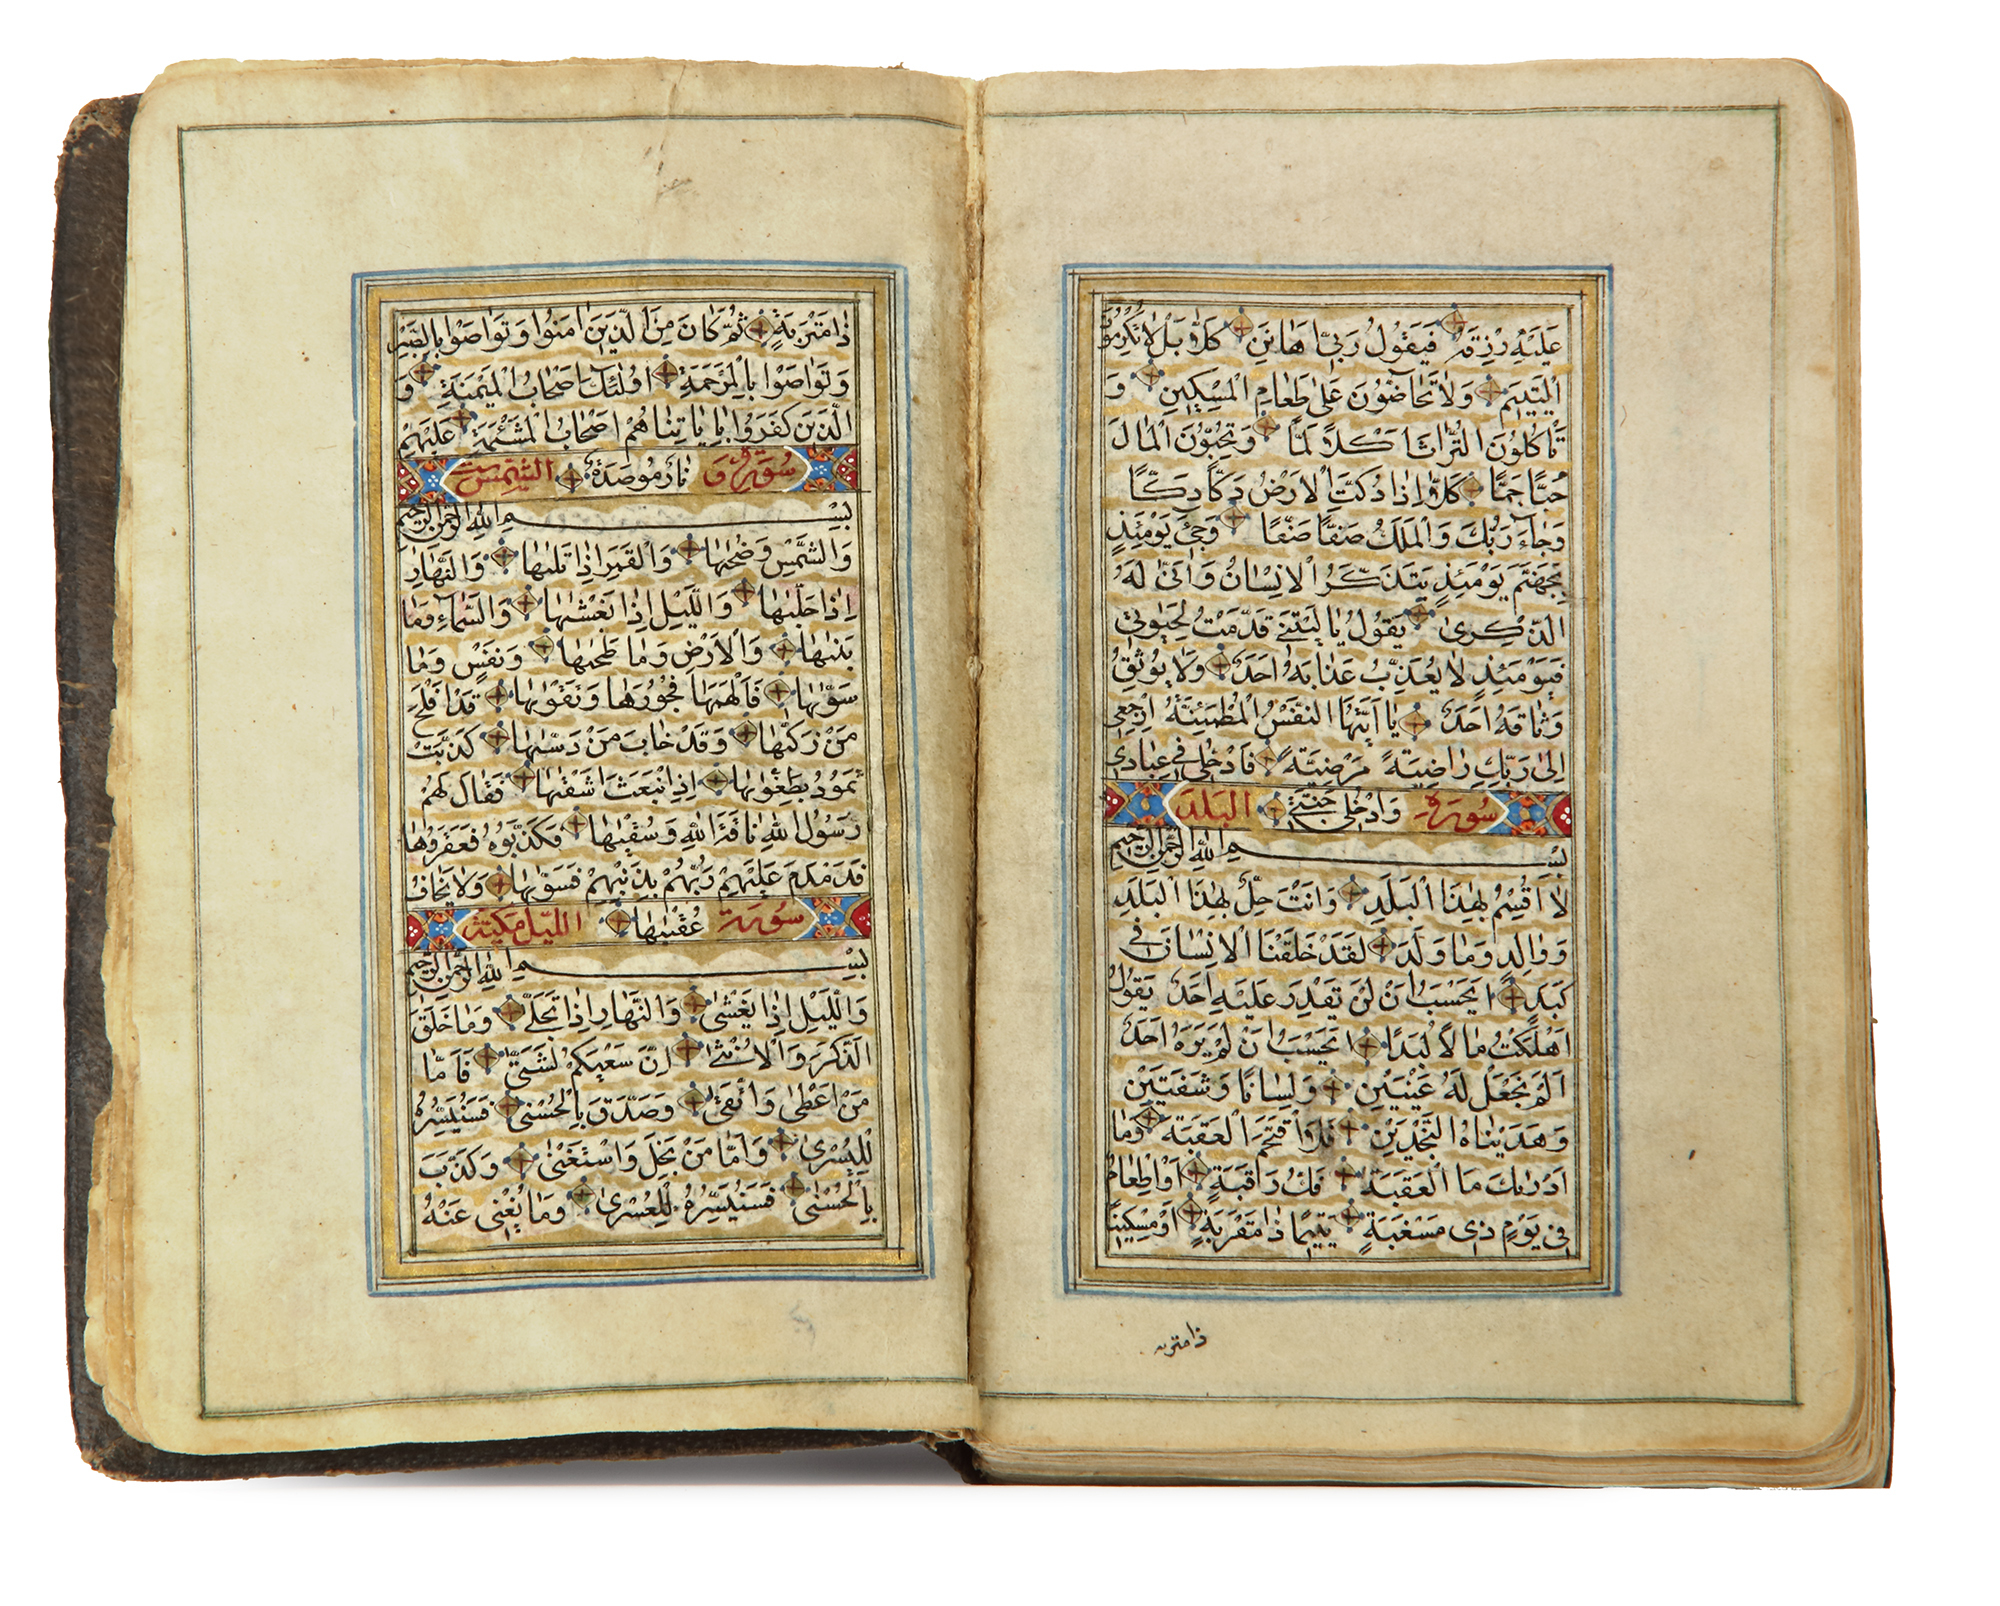 عَلَيْهِ رِزْقَهُ فَيَقُولُ رَبِّى اَهَانَنِ كَلَّا بَلْ لَا تُكْرِمُونَ
الْيَتِيمَ وَلَا تَحَاضُّونَ عَلَى طَعَامِ الْمِسْكِينِ وَ
تَأْكُلُونَ التُّرَاثَ اَكْلًا لَمًّا وَتُحِبُّونَ الْمَالَ
حُبًّا جَمًّا كَلَّا اِذَا دُكَّتِ الْاَرْضُ دَكًّا دَكًّا
وَجَاءَ رَبُّكَ وَالْمَلَكُ صَفًّا صَفًّا وَجِىءَ يَوْمَئِذٍ
بِجَهَنَّمَ يَوْمَئِذٍ يَتَذَكَّرُ الْاِنْسَانُ وَاَنَّى لَهُ
الذِّكْرَى يَقُولُ يَا لَيْتَنِى قَدَّمْتُ لِحَيٰوتِى
فَيَوْمَئِذٍ لَا يُعَذِّبُ عَذَابَهُ اَحَدٌ وَلَا يُوثِقُ
وَثَاقَهُ اَحَدٌ يَا اَيَّتُهَا النَّفْسُ الْمُطْمَئِنَّةُ ارْجِعِى
اِلَى رَبِّكِ رَاضِيَةً مَرْضِيَّةً فَادْخُلِى فِى عِبَادِى
سُورَة وَادْخُلِى جَنَّتِى الْبَلَد
بِسْمِ اللّٰهِ الرَّحْمٰنِ الرَّحِيمِ
لَا اُقْسِمُ بِهٰذَا الْبَلَدِ وَاَنْتَ حِلٌّ بِهٰذَا الْبَلَدِ
وَوَالِدٍ وَمَا وَلَدَ لَقَدْ خَلَقْنَا الْاِنْسَانَ فِى
كَبَدٍ اَيَحْسَبُ اَنْ لَنْ يَقْدِرَ عَلَيْهِ اَحَدٌ يَقُولُ
اَهْلَكْتُ مَالًا لُبَدًا اَيَحْسَبُ اَنْ لَمْ يَرَهُ اَحَدٌ
اَلَمْ نَجْعَلْ لَهُ عَيْنَيْنِ وَلِسَانًا وَشَفَتَيْنِ
وَهَدَيْنَاهُ النَّجْدَيْنِ فَلَا اقْتَحَمَ الْعَقَبَةَ وَمَا
اَدْرٰىكَ مَا الْعَقَبَةُ فَكُّ رَقَبَةٍ اَوْ اِطْعَامٌ
فِى يَوْمٍ ذِى مَسْغَبَةٍ يَتِيمًا ذَا مَقْرَبَةٍ اَوْ مِسْكِينًا
ذا متربه
ذَا مَتْرَبَةٍ ثُمَّ كَانَ مِنَ الَّذِينَ اٰمَنُوا وَتَوَاصَوْا بِالصَّبْرِ
وَتَوَاصَوْا بِالْمَرْحَمَةِ اُولٰئِكَ اَصْحَابُ الْمَيْمَنَةِ وَ
الَّذِينَ كَفَرُوا بِاٰيَاتِنَا هُمْ اَصْحَابُ الْمَشْئَمَةِ عَلَيْهِمْ
سُورَة وَ نَارٌ مُوصَدَةٌ الشَّمْس
بِسْمِ اللّٰهِ الرَّحْمٰنِ الرَّحِيمِ
وَالشَّمْسِ وَضُحٰيهَا وَالْقَمَرِ اِذَا تَلٰيهَا وَالنَّهَارِ
اِذَا جَلّٰيهَا وَالَّيْلِ اِذَا يَغْشٰيهَا وَالسَّمَاءِ وَمَا
بَنٰيهَا وَالْاَرْضِ وَمَا طَحٰيهَا وَنَفْسٍ وَمَا
سَوّٰيهَا فَاَلْهَمَهَا فُجُورَهَا وَتَقْوٰيهَا قَدْ اَفْلَحَ
مَنْ زَكّٰيهَا وَقَدْ خَابَ مَنْ دَسّٰيهَا كَذَّبَتْ
ثَمُودُ بِطَغْوٰيهَا اِذِ انْبَعَثَ اَشْقٰيهَا فَقَالَ لَهُمْ
رَسُولُ اللّٰهِ نَاقَةَ اللّٰهِ وَسُقْيٰهَا فَكَذَّبُوهُ فَعَقَرُوهَا
فَدَمْدَمَ عَلَيْهِمْ رَبُّهُمْ بِذَنْبِهِمْ فَسَوّٰيهَا وَلَا يَخَافُ
سُورَة عُقْبٰيهَا اللَّيْل مَكِّيَّة
بِسْمِ اللّٰهِ الرَّحْمٰنِ الرَّحِيمِ
وَالَّيْلِ اِذَا يَغْشٰى وَالنَّهَارِ اِذَا تَجَلّٰى وَمَا خَلَقَ
الذَّكَرَ وَالْاُنْثٰى اِنَّ سَعْيَكُمْ لَشَتّٰى فَاَمَّا
مَنْ اَعْطٰى وَاتَّقٰى وَصَدَّقَ بِالْحُسْنٰى فَسَنُيَسِّرُهُ
لِلْيُسْرٰى وَاَمَّا مَنْ بَخِلَ وَاسْتَغْنٰى وَكَذَّبَ
بِالْحُسْنٰى فَسَنُيَسِّرُهُ لِلْعُسْرٰى وَمَا يُغْنِى عَنْهُ